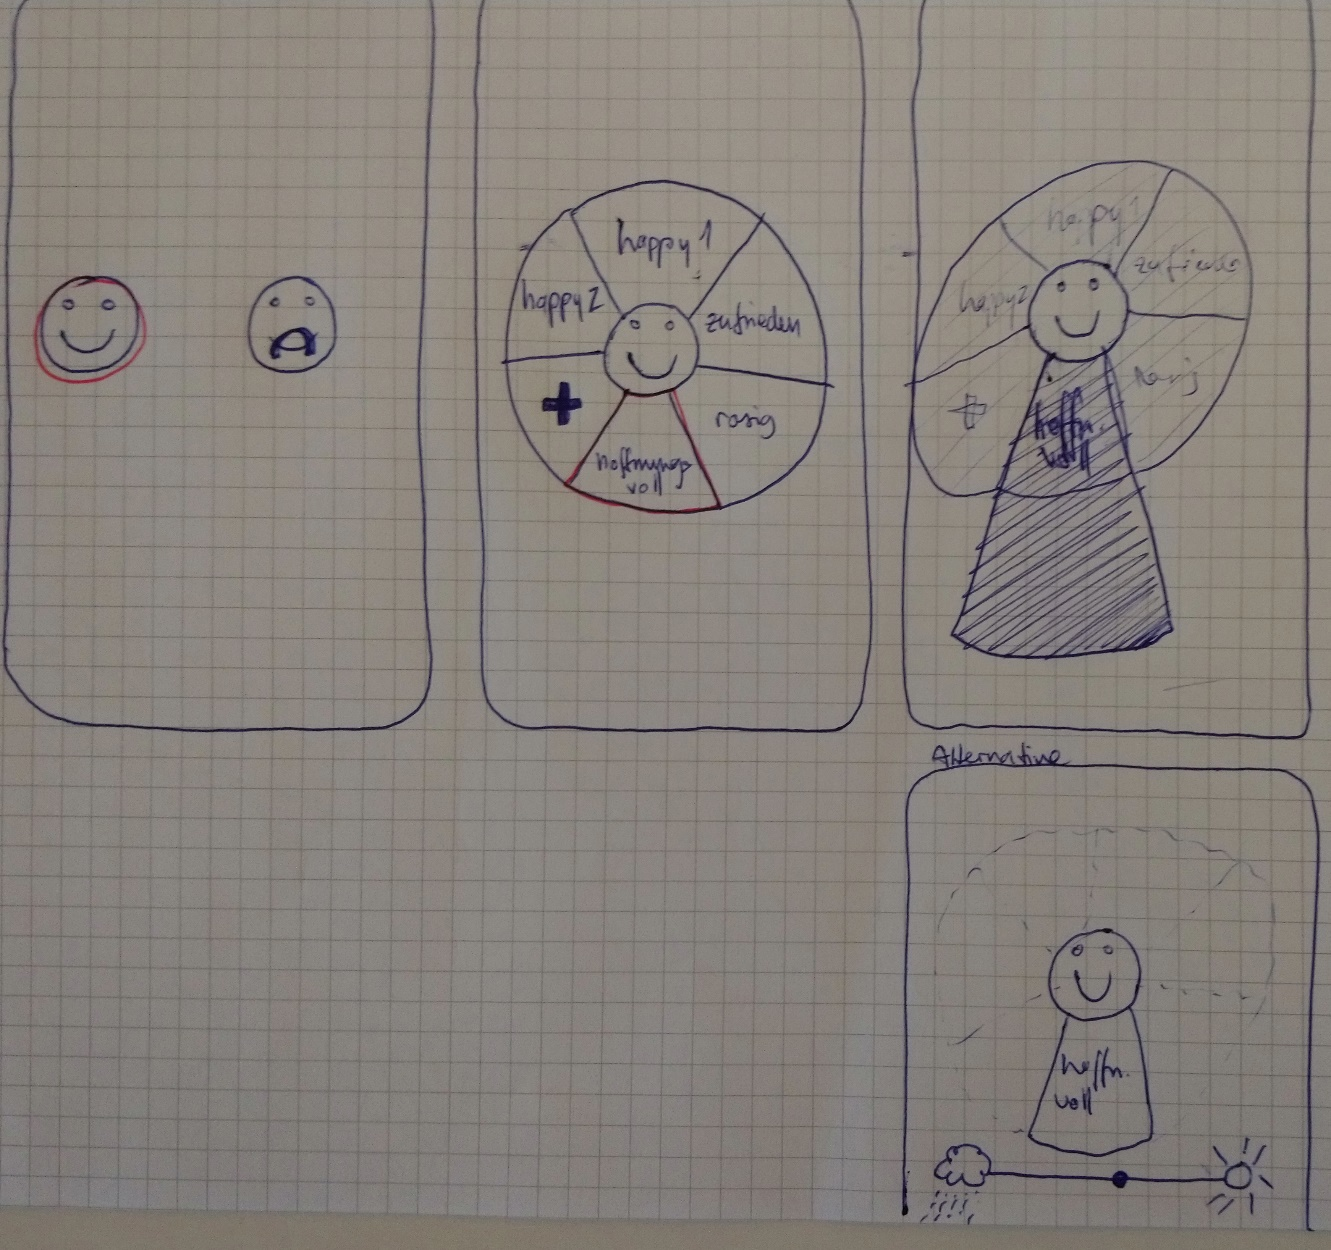 happy 1
happy 2
zufrieden
+
rosig
hoffnungs
voll
happy 1
zufrieden
happy 2
+
rosig
hoffn.
voll
Alternative
hoffn.
voll